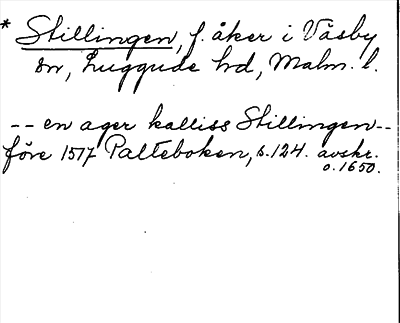 * Stillingen, f. åker i Väsby
sn, Luggude hd, Malm. l.
-- en ager kalliss Stillingen --
före 1517 Palteboken, s. 124. avskr.
o. 1650.